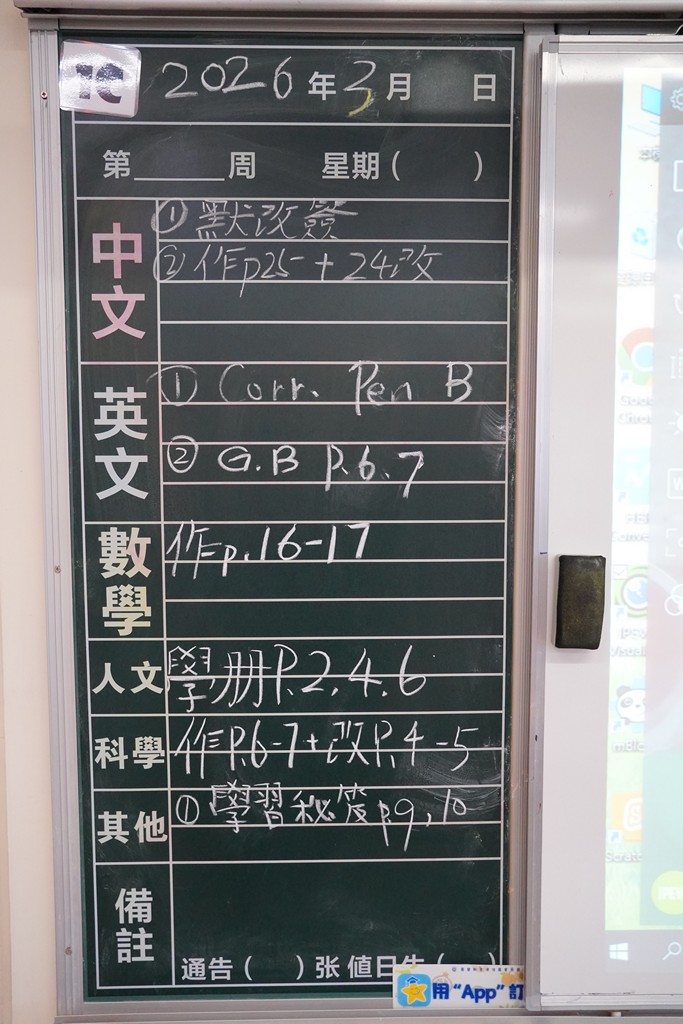 1C
2026 年 3 月 日
第______周 星期 ( )
中文
① 默改簽
② 作p25 + 24改
英文
① Corr. Pen B
② G.B P.6.7
數學
作p.16-17
人文
學册P.2.4.6
科學
作P.6-7+改P.4-5
其他
① 學習秘笈p.9,10
備註
通告 ( ) 张 值日生 ( )
用 “App” 訂